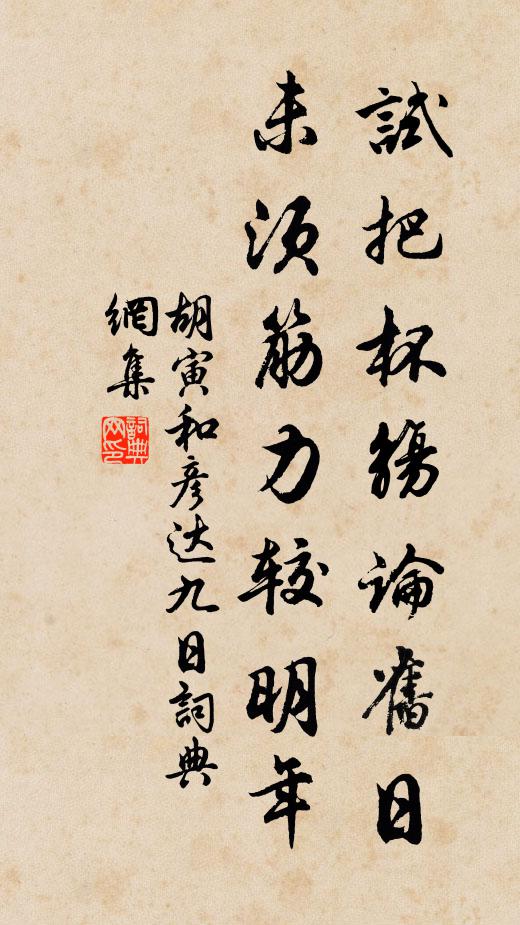 試把杯觴論舊日
未須筋力較明年
胡寅和彦达九日詞典
網集
詞典網印